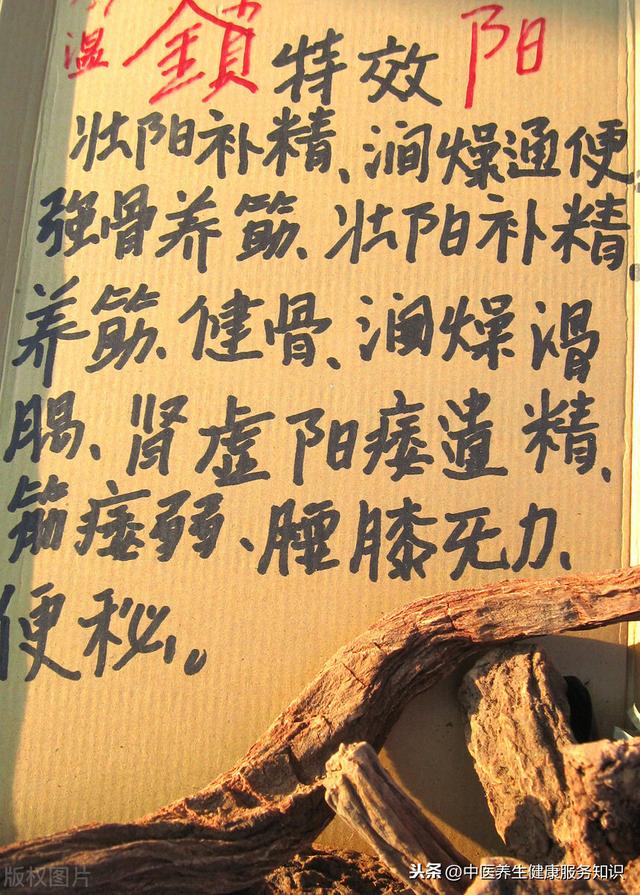 温 鎖 特效 阳
壮阳补精、涧燥通便
強骨养筋、壮阳补精
养筋、健骨、涧燥滑
腸、肾虚阳痿遺精、
筋痿弱、腰膝无力、
便秘。
版权图片
头条@中医养生健康服务知识